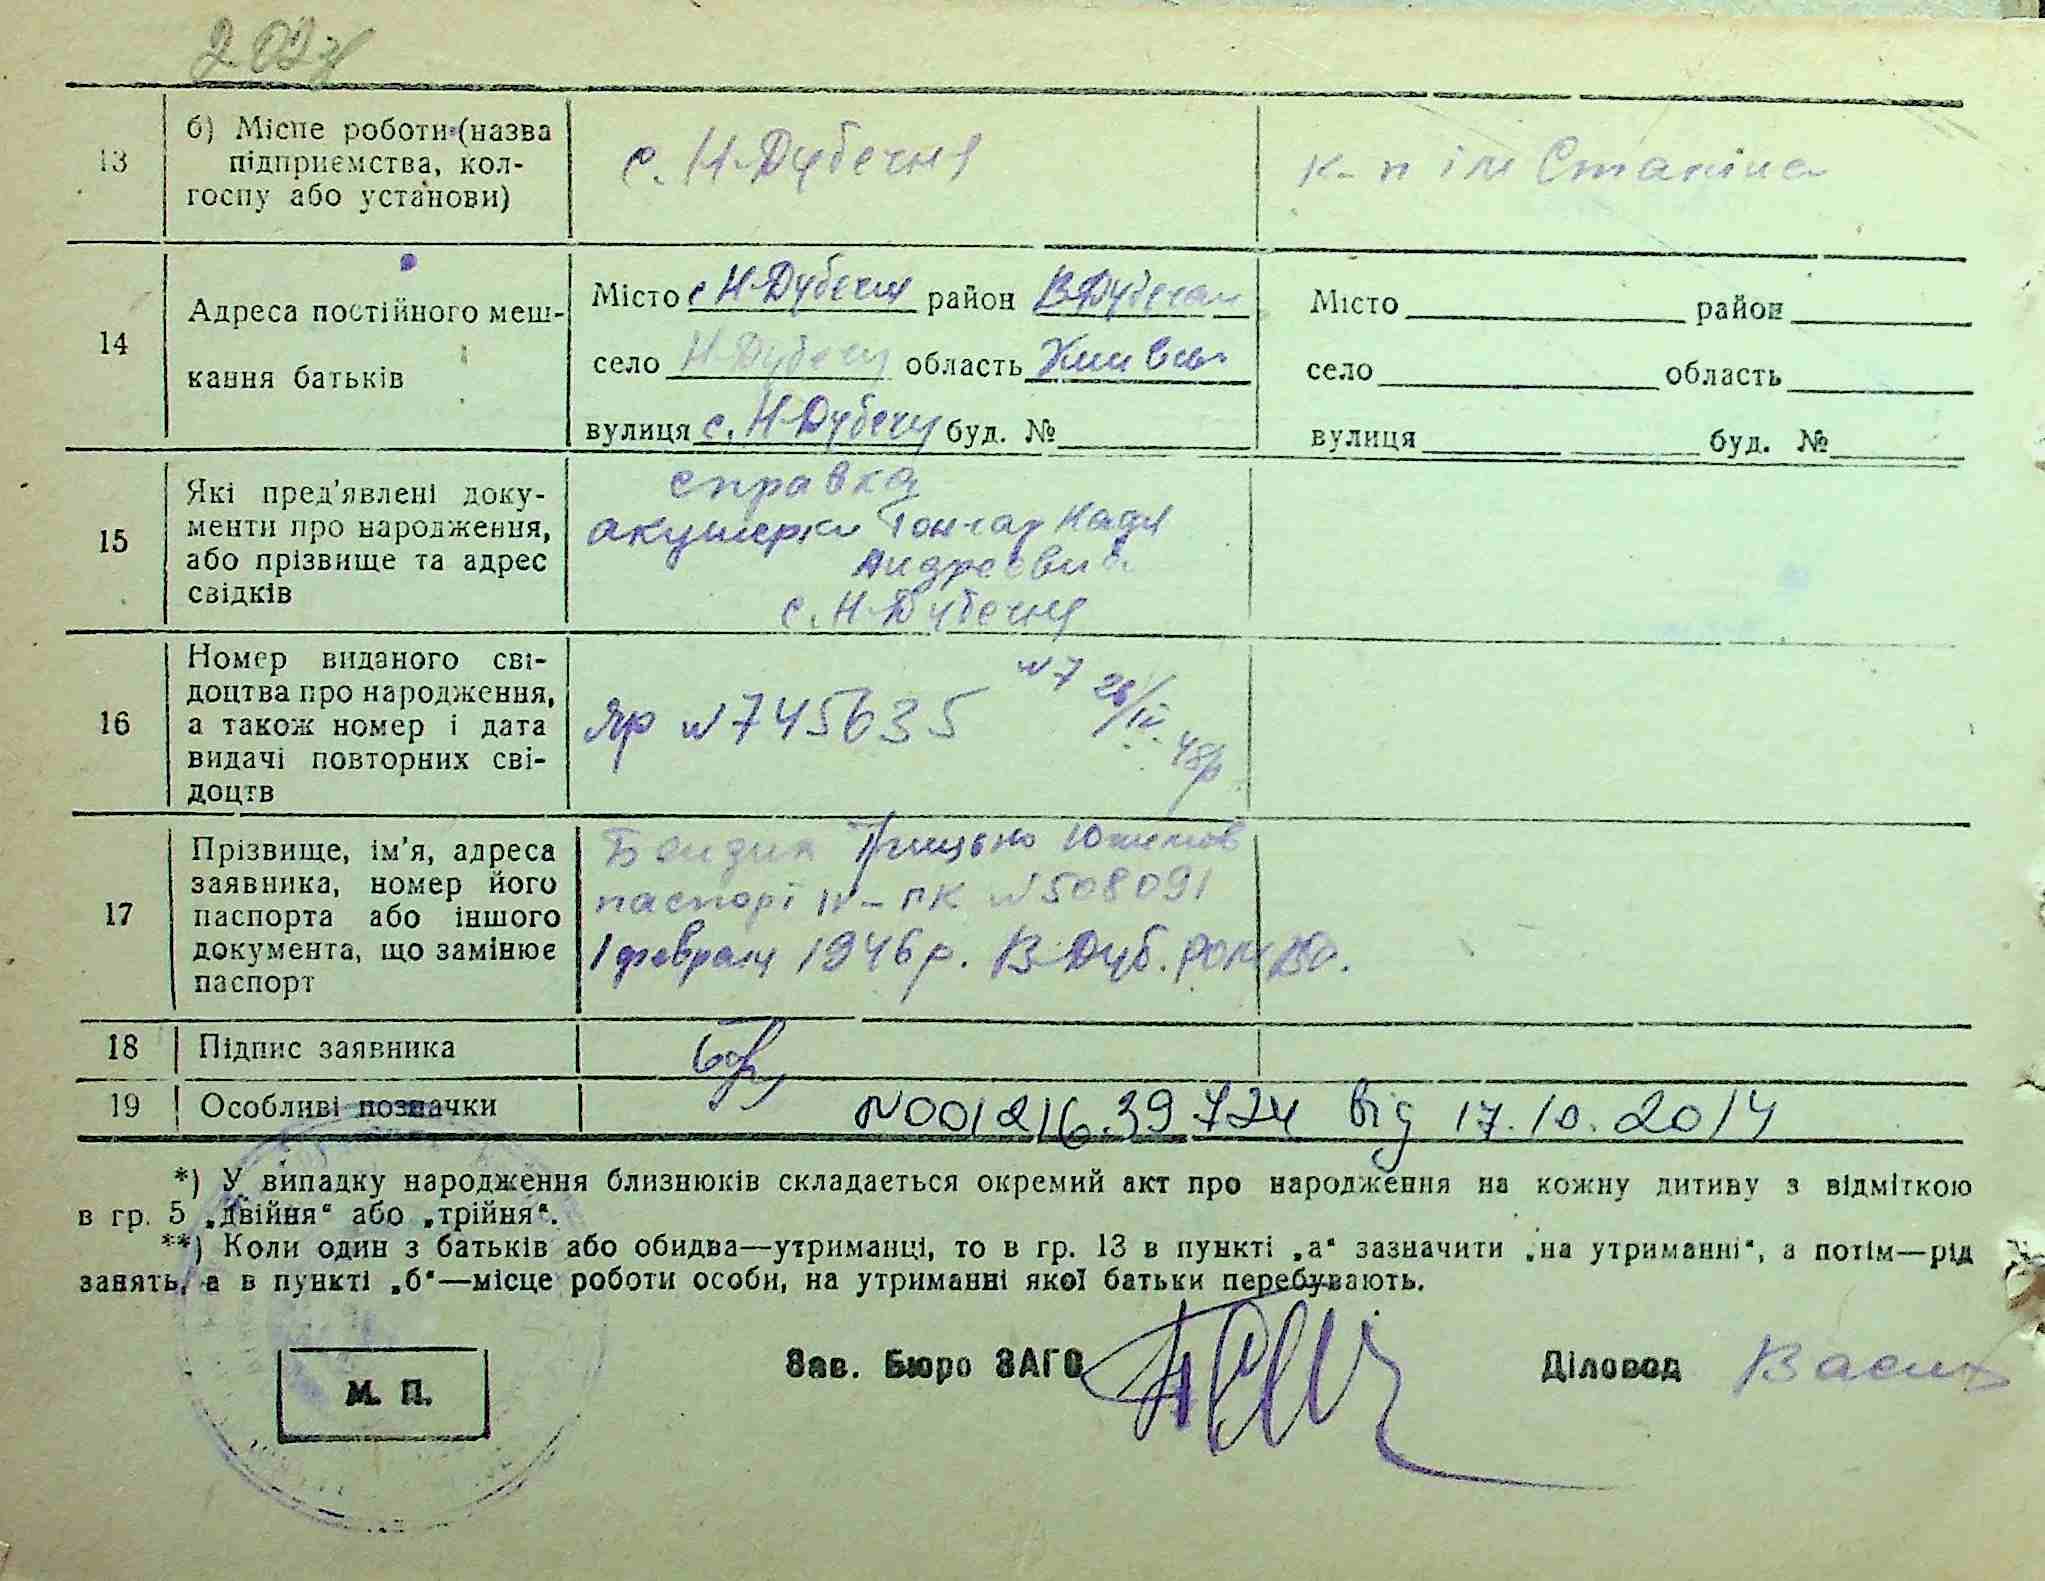 202
13
б) Місце роботи (назва
підприємства, кол-
госпу або установи)
с. Н-Дубечня
к-п ім Сталіна
14
Адреса постійного меш-
кання батьків
Місто с Н-Дубечня район В-Дубечан
село Н-Дубечу область Київськ
вулиця с. Н-Дубечу буд. №
Місто район
село область
вулиця буд. №
15
Які пред'явлені доку-
менти про народження,
або прізвище та адрес
свідків
справка
акушерки Гончар Надя
Андреевна
с. Н-Дубечня
16
Номер виданого сві-
доцтва про народження,
а також номер і дата
видачі повторних сві-
доцтв
яр № 745635 № 7 26/IV 48р
17
Прізвище, ім'я, адреса
заявника, номер його
паспорта або іншого
документа, що замінює
паспорт
Грицько
паспорт IV-ПК № 508091
1 февраля 1946 р. В-Дуб. РОМВД.
18 Підпис заявника
19 Особливі позначки
№ 00121639724 від 17.10.2014
*) У випадку народження близнюків складається окремий акт про народження на кожну дитину з відміткою
в гр. 5 „двійня“ або „трійня“.
**) Коли один з батьків або обидва—утриманці, то в гр. 13 в пункті „а“ зазначити „на утриманні“, а потім—рід
занять, а в пункті „б“—місце роботи особи, на утриманні якої батьки перебувають.
М. П.
Зав. Бюро ЗАГС
Діловод